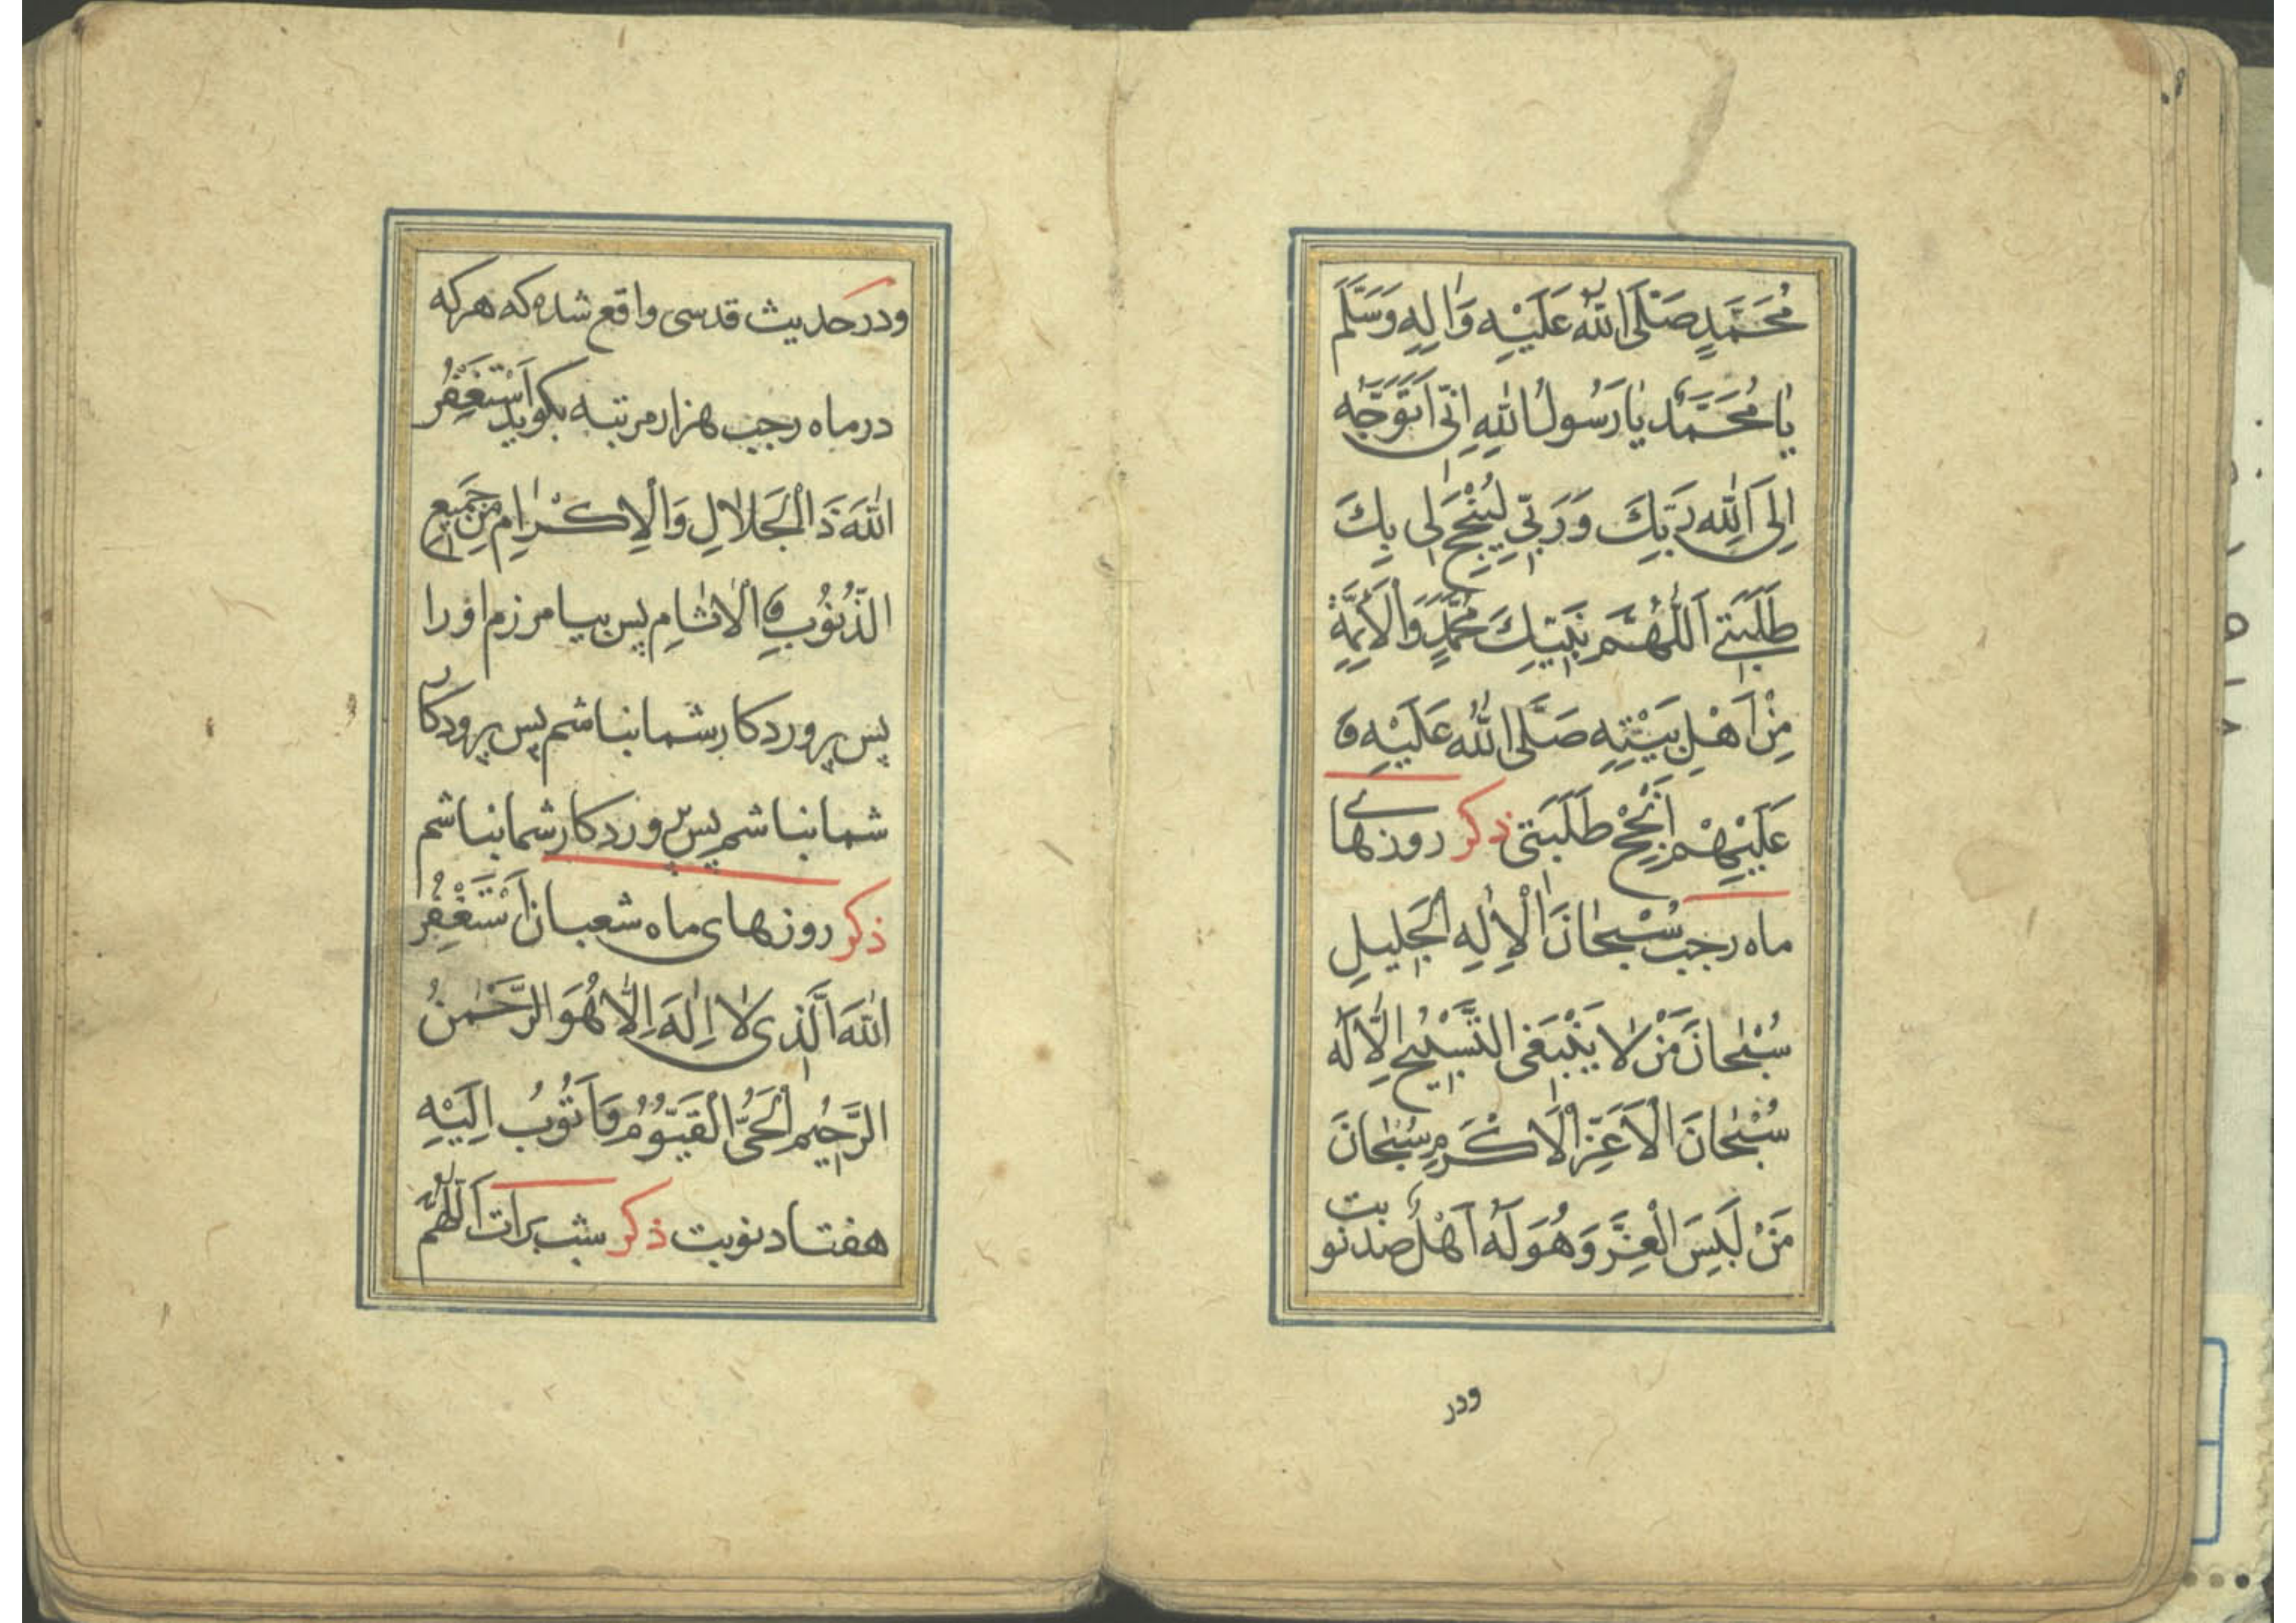 مُحَمَّدٍ صَلَّى اللّٰهُ عَلَيْهِ وَاٰلِهِ وَسَلَّمَ
يٰا مُحَمَّدُ يٰا رَسُولَ اللّٰهِ اِنّى اَتَوَجَّهُ
اِلَى اللّٰهِ رَبِّكَ وَرَبّى لِيُنْجِحَ لى بِكَ
طَلِبَتى اَللّٰهُمَّ بِنَبِيِّكَ مُحَمَّدٍ وَالْاَئِمَّةِ
مِنْ اَهْلِ بَيْتِهِ صَلَّى اللّٰهُ عَلَيْهِ وَ
عَلَيْهِمْ اَنْجِحْ طَلِبَتى ذكر روزهاے
ماه رجب سُبْحٰانَ الْاِلٰهِ الْجَليلِ
سُبْحٰانَ مَنْ لٰا يَنْبَغِى التَّسْبيحُ اِلّٰا لَهُ
سُبْحٰانَ الْاَعَزِّ الْاَكْرَمِ سُبْحٰانَ
مَنْ لَبِسَ الْعِزَّ وَهُوَ لَهُ اَهْلٌ صد نوبت
ودر
ودر حدیث قدسی واقع شده که هرکه
در ماه رجب هزار مرتبه بکوید اَسْتَغْفِرُ
اللّٰهَ ذَا الْجَلالِ وَالْاِكْرٰامِ مِنْ جَميعِ
الذُّنُوبِ وَ الْاٰثٰامِ پس بیامرزم اورا
پس پروردکار شما نباشم پس پرودکار
شما نباشم پس پروردکار شما نباشم
ذكر روزهای ماه شعبان اَسْتَغْفِرُ
اللّٰهَ الَّذى لٰا اِلٰهَ اِلّٰا هُوَ الرَّحْمٰنُ
الرَّحيمُ الْحَىُّ الْقَيُّومُ وَاَتُوبُ اِلَيْهِ
هفتاد نوبت ذكر شب برات اَللّٰهُمَّ